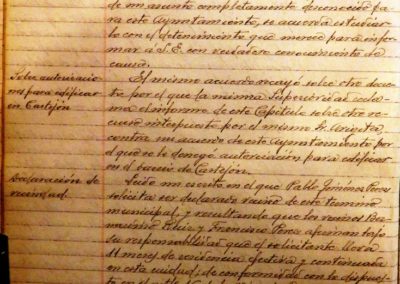 de un asunto completamente desconocido pa
ra este Ayuntamiento, se acuerda estudiar
lo con el detenimiento que merece para infor
mar á S.E. con verdadero conocimiento de
causa.
Sobre autorizacio
nes para edificar
en Castejón
El mismo acuerdo recayó sobre otro decre
to por el que la misma Superioridad recla
ma el informe de este Capítulo sobre otro re
curso interpuesto por el mismo Sr.
contra un acuerdo de este Ayuntamiento por
el que se le denegó autorización para edificar
en el barrio de Castejón.
Declaración de
vecindad.
Leido un escrito en el que Pablo Jimenez Perez
solicita ser declarado vecino de este término
municipal, y resultando que los vecinos Ber
nardino Ruiz y Francisco Perez afirman bajo
su responsabilidad que el solicitante lleva
11 meses de residencia efectiva y continuada
en esta ciudad; de conformidad con lo dispues
to en el